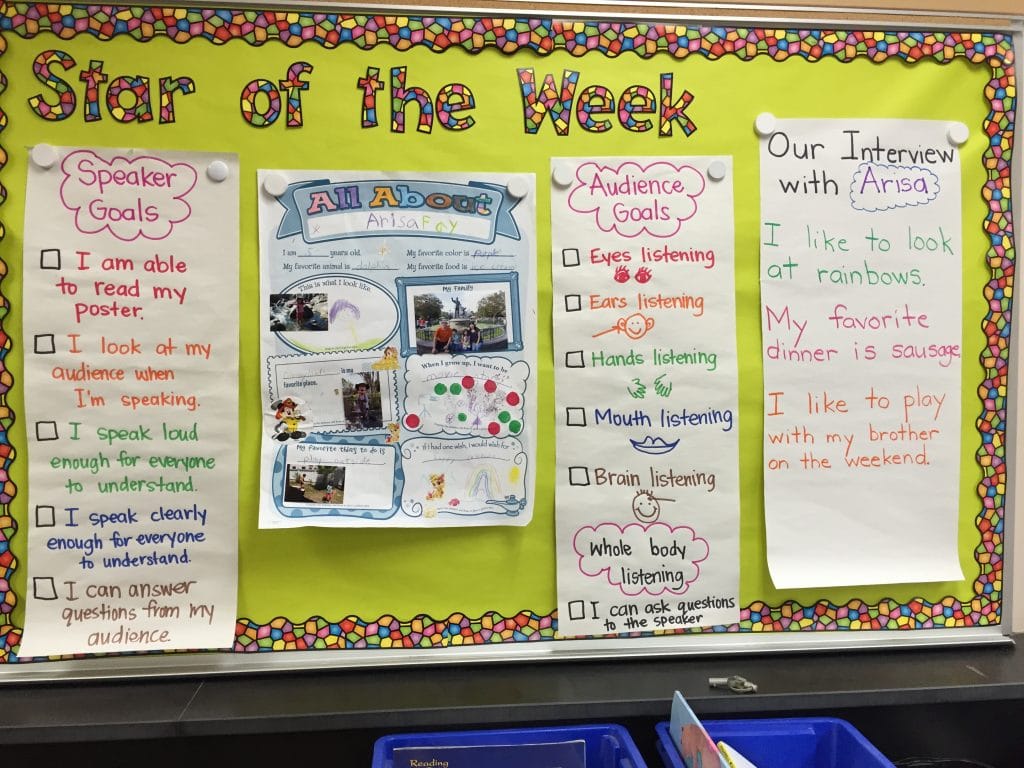 Star of the Week
Speaker
Goals
I am able
to read my
poster.
I look at my
audience when
I'm speaking.
I speak loud
enough for everyone
to understand.
I speak clearly
enough for everyone
to understand.
I can answer
questions from my
audience.
All About
Arisa
I am 5 years old.
My favorite color is purple
My favorite animal is dolphin
My favorite food is ice cream
This is what I look like.
My Family
is my
favorite place.
When I grow up, I want to be
My favorite thing to do is
play outside
If I had one wish, I would wish for
Audience
Goals
Eyes listening
Ears listening
Hands listening
Mouth listening
Brain listening
whole body
listening
I can ask questions
to the speaker
Our Interview
with Arisa
I like to look
at rainbows.
My favorite
dinner is sausage.
I like to play
with my brother
on the weekend.
Reading